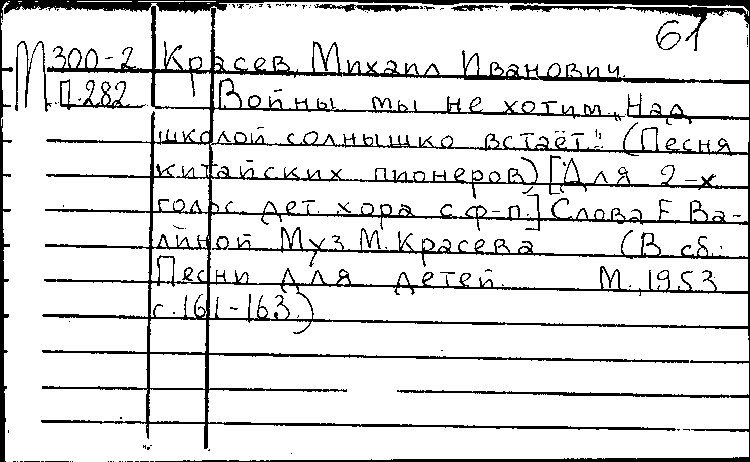 61
М 300-2 Красев, Михаил Иванович.
П.282 Войны мы не хотим. „Над
школой солнышко встаёт." (Песня
китайских пионеров) [Для 2-х
голос. дет. хора с ф-п.] Слова Е. Ва-
лйной Муз М. Красева (В сб.:
Песни для детей. М., 1953
с. 161-163.)